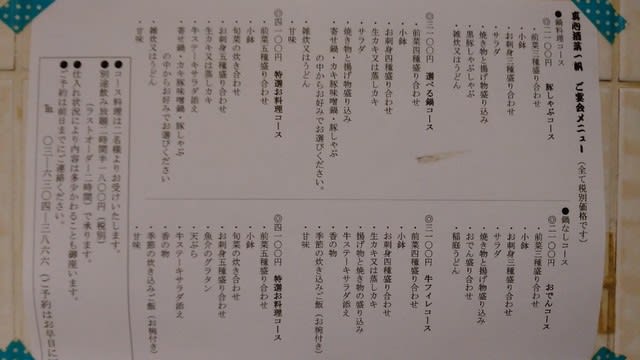 ご宴会メニュー（全て税別価格です）
●鍋料理コース
豚しゃぶコース
・前菜三種盛り合わせ
・小鉢
・お刺身三種盛り合わせ
・サラダ
・焼き物と揚げ物盛り込み
・黒豚しゃぶしゃぶ
・雑炊又はうどん
◎三一〇〇円 選べる鍋コース
・前菜四種盛り合わせ
・小鉢
・サラダ
・焼き物と揚げ物盛り込み
・生カキ又は蒸しカキ
・お刺身四種盛り合わせ
・寄せ鍋・カキ豚味噌鍋・豚しゃぶ
の中からお好みでお選びください。
・雑炊又はうどん
・甘味
◎四一〇〇円 特選お料理コース
・前菜五種盛り合わせ
・小鉢
・旬菜の炊き合わせ
・お刺身五種盛り合わせ
・生カキ又は蒸しカキ
・牛ステーキサラダ添え
・寄せ鍋・カキ豚味噌鍋・豚しゃぶ
の中からお好みでお選びください
・雑炊又はうどん
・甘味
●鍋なしコース
◎二一〇〇円 おでんコース
・前菜三種盛り合わせ
・小鉢
・お刺身三種盛り合わせ
・サラダ
・焼き物と揚げ物盛り込み
・おでん盛り合わせ
・稲庭うどん
◎三一〇〇円 牛フィレコース
・前菜四種盛り合わせ
・小鉢
・お刺身四種盛り合わせ
・生カキ又は蒸しカキ
・揚げ物と焼き物の盛り込み
・牛ステーキサラダ添え
・香の物
・季節の炊き込みご飯（お椀付き）
・甘味
◎四一〇〇円 特選お料理コース
・前菜五種盛り合わせ
・小鉢
・旬菜の炊き合わせ
・お刺身五種盛り合わせ
・魚介のグラタン
・天ぷら
・牛ステーキサラダ添え
・香の物
・季節の炊き込みご飯（お椀付き）
・甘味
●コース料理は二名様よりお受けいたします。
●別途飲み放題二時間半一八〇〇円（税別）
（ラストオーダー二時間）で承ります。
●仕入れ状況により内容は多少かわることも御座います。
●ご予約は前日までにご連絡ください。
℡ 〇三-六三〇四-三八六六（ご予約はお早目に